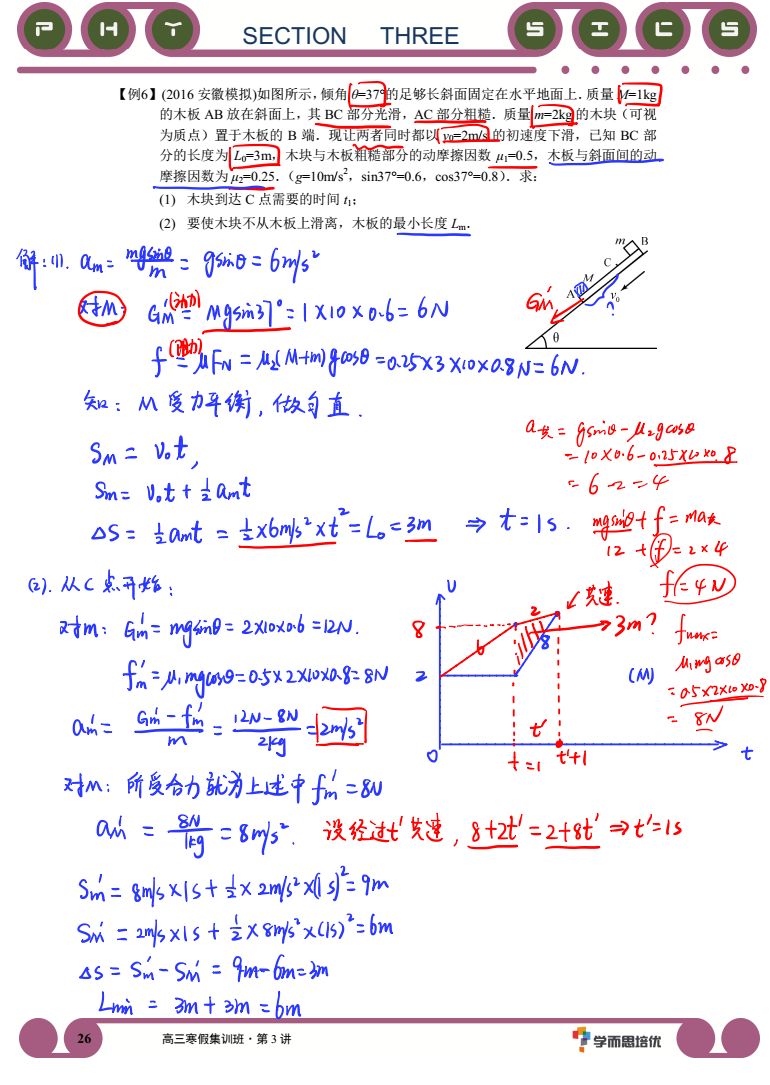 P H Y SECTION THREE S I C S
【例6】(2016 安徽模拟)如图所示,倾角 θ=37°的足够长斜面固定在水平地面上．质量 M=1kg
的木板 AB 放在斜面上，其 BC 部分光滑，AC 部分粗糙．质量 m=2kg 的木块（可视
为质点）置于木板的 B 端．现让两者同时都以 v₀=2m/s 的初速度下滑，已知 BC 部
分的长度为 L₀=3m，木块与木板粗糙部分的动摩擦因数 μ₁=0.5，木板与斜面间的动
摩擦因数为 μ₂=0.25．（g=10m/s²，sin37°=0.6，cos37°=0.8）．求：
(1) 木块到达 C 点需要的时间 t₁；
(2) 要使木块不从木板上滑离，木板的最小长度 Lₘ．
m B
C
M
A
v₀
?
θ
GM'
解：(1). am = mgsinθ/m = gsinθ = 6m/s²
对M： GM'(动力) = Mgsin37° = 1×10×0.6 = 6N
f(阻力) = μFN = μ₂(M+m)gcosθ = 0.25×3×10×0.8N = 6N.
知：M 受力平衡，做匀直．
SM = v₀t，
Sm = v₀t + ½amt
ΔS = ½amt = ½×6m/s²×t² = L₀ = 3m ⇒ t = 1s .
a共 = gsinθ - μ₂gcosθ
= 10×0.6 - 0.25×10×0.8
= 6 - 2 = 4
mgsinθ + f = ma共
12 + f = 2×4
f = 4N
fmax =
μ₁mgcosθ
= 0.5×2×10×0.8
= 8N
(2). 从C点开始：
对m： Gm' = mgsinθ = 2×10×0.6 = 12N.
fm' = μ₁mgcosθ = 0.5×2×10×0.8 = 8N
am' = (Gm' - fm')/m = (12N - 8N)/2kg = 2m/s²
υ
共速.
8
2
6
2
8
3m?
(M)
t'
0
t=1
t'+1
t
对M：所受合力就为上述中 fm' = 8N
aM' = 8N/1kg = 8m/s². 设经过t'共速，8+2t' = 2+8t' ⇒ t' = 1s
Sm' = 8m/s×1s + ½×2m/s²×(1s)² = 9m
SM' = 2m/s×1s + ½×8m/s²×(1s)² = 6m
ΔS = Sm' - SM' = 9m - 6m = 3m
Lmin = 3m + 3m = 6m
26 高三寒假集训班·第 3 讲 学而思培优